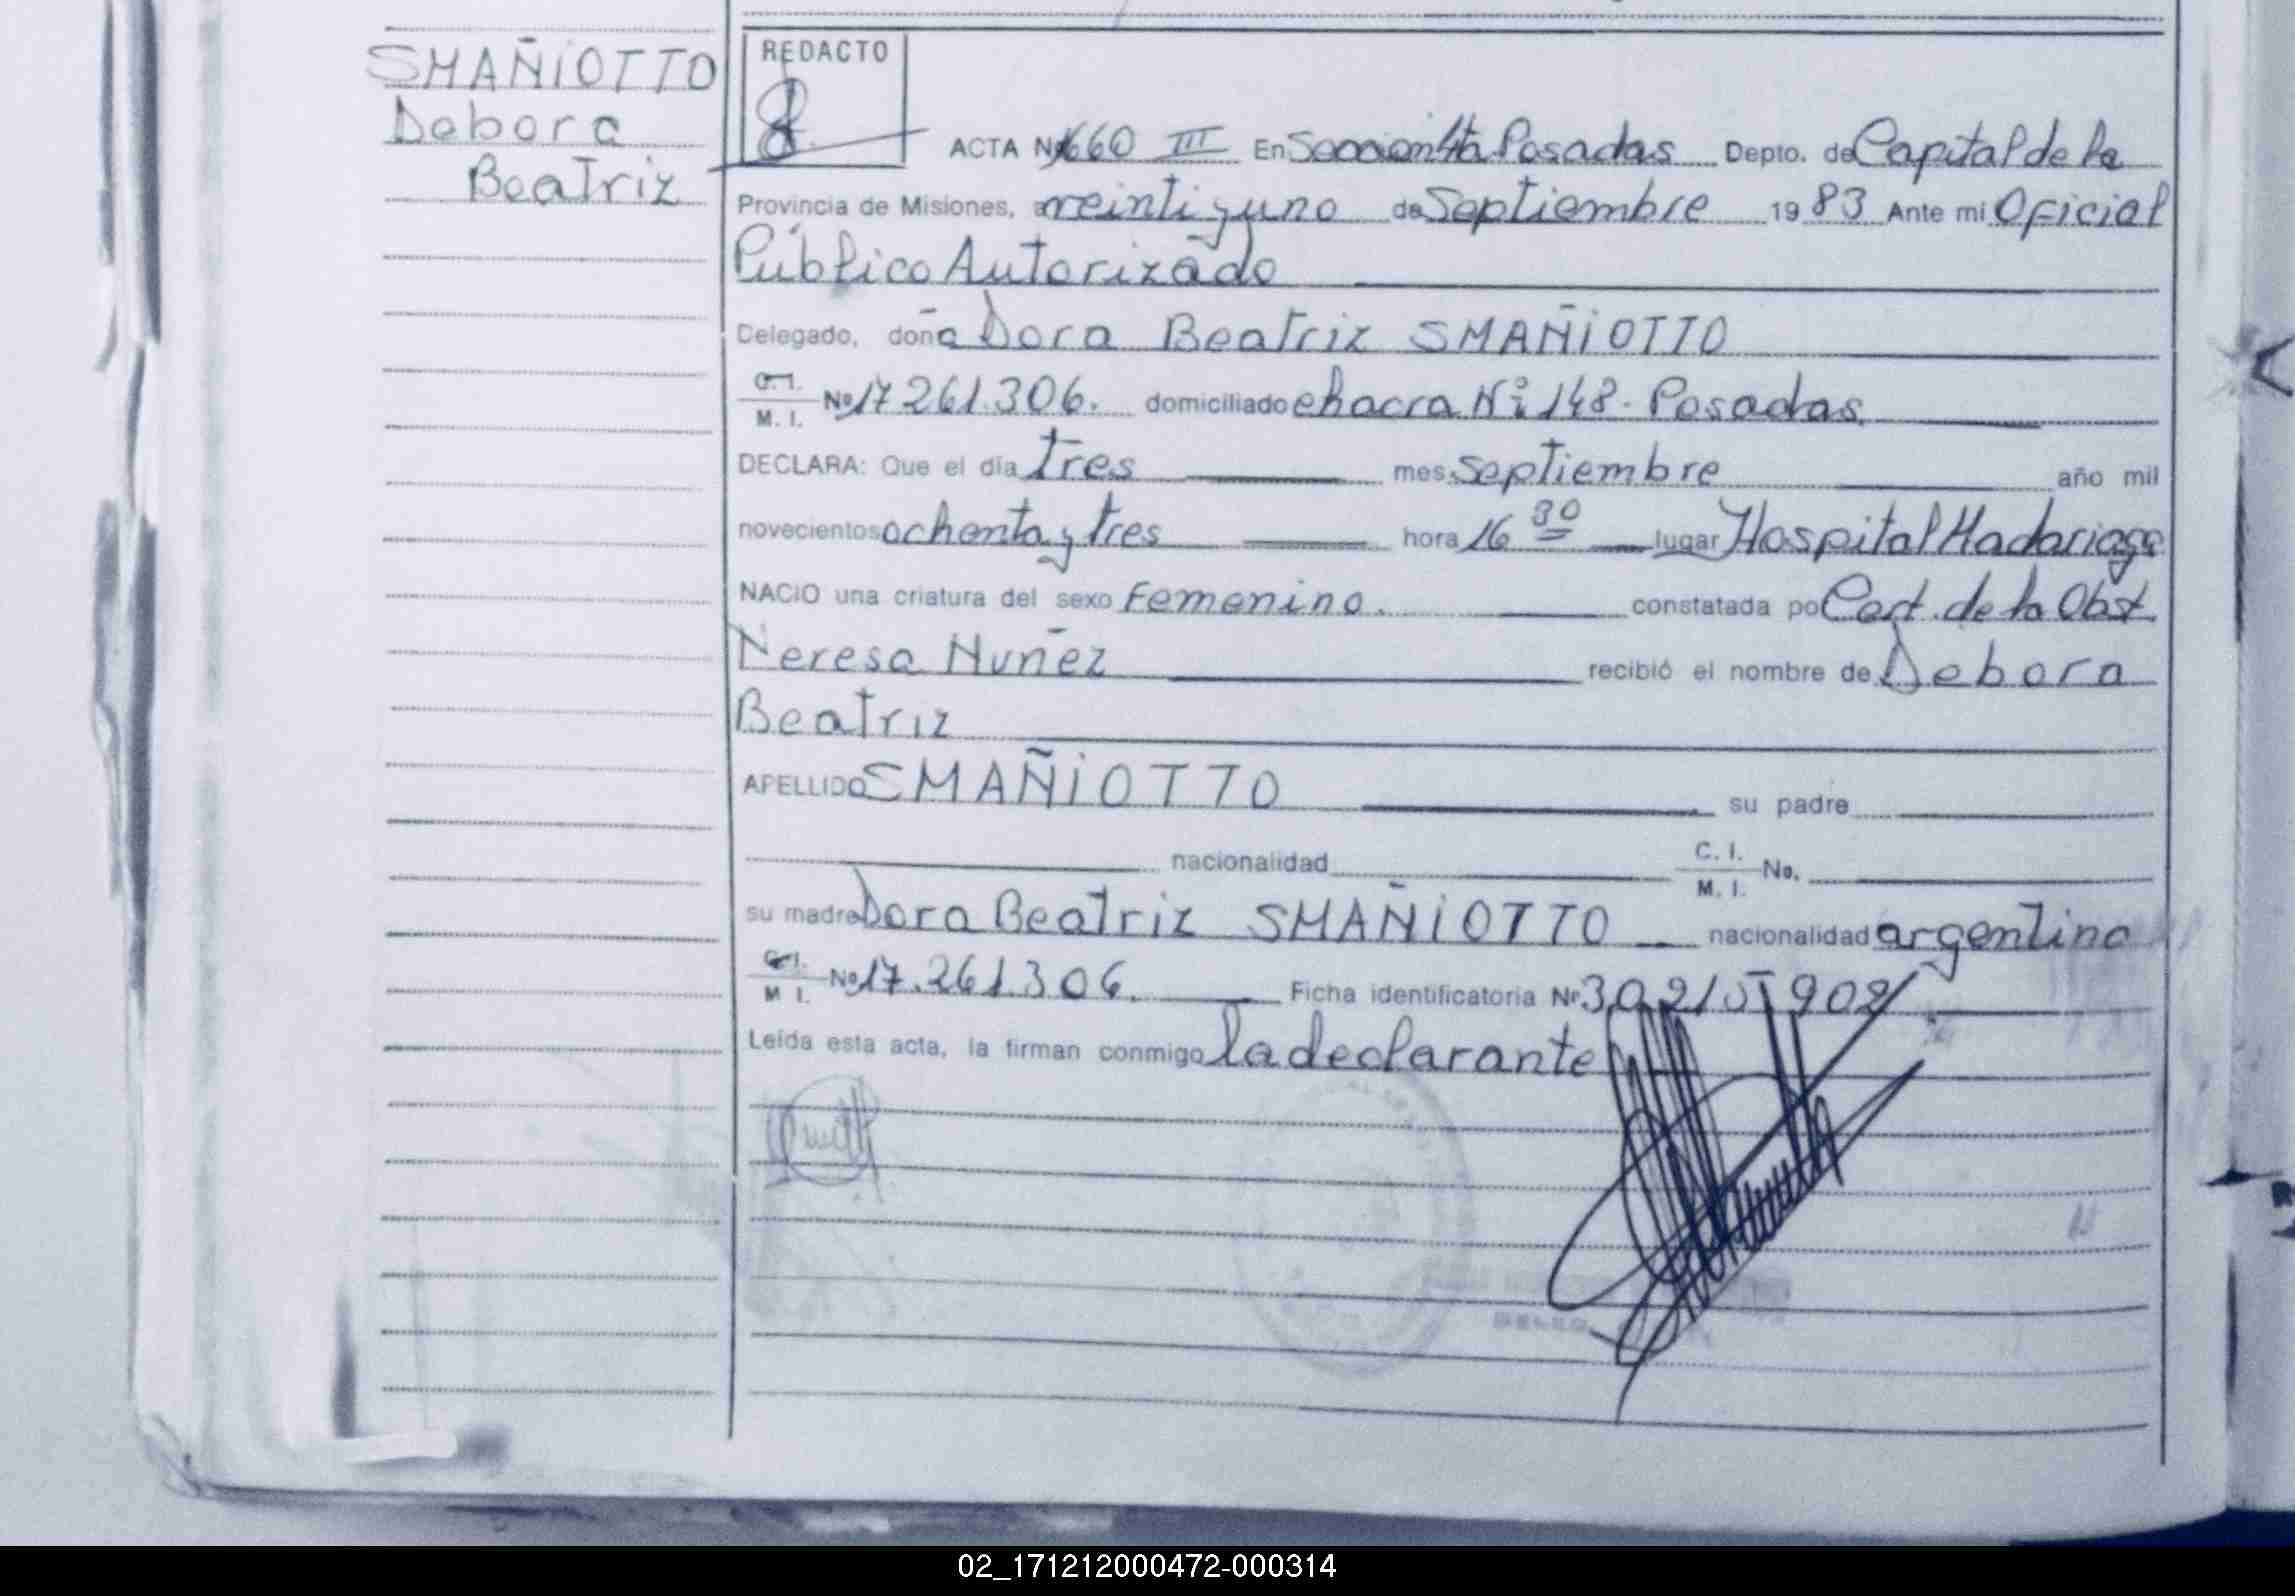 SMAÑIOTTO
Debora
Beatriz
REDACTO
ACTA Nº 660 III En Sección 4ta Posadas Depto. de Capital de la
Provincia de Misiones, a veintiyuno de Septiembre 19 83 Ante mi Oficial
Público Autorizado
Delegado, doña Dora Beatriz SMAÑIOTTO
C. I. M. I. Nº 17261.306. domiciliado chacra Nº 148. Posadas.
DECLARA: Que el día tres mes septiembre año mil
novecientos ochenta y tres hora 16 30 lugar Hospital Madariaga
NACIO una criatura del sexo Femenino. constatada po Cert. de la Obst.
Teresa Nuñez recibió el nombre de Debora
Beatriz
APELLIDO SMAÑIOTTO su padre
nacionalidad C. I. M. I. No.
su madre Dora Beatriz SMAÑIOTTO nacionalidad argentina
C. I. M I. Nº 17.261.306. Ficha identificatoria Nº
Leída esta acta, la firman conmigo la declarante
02_171212000472-000314